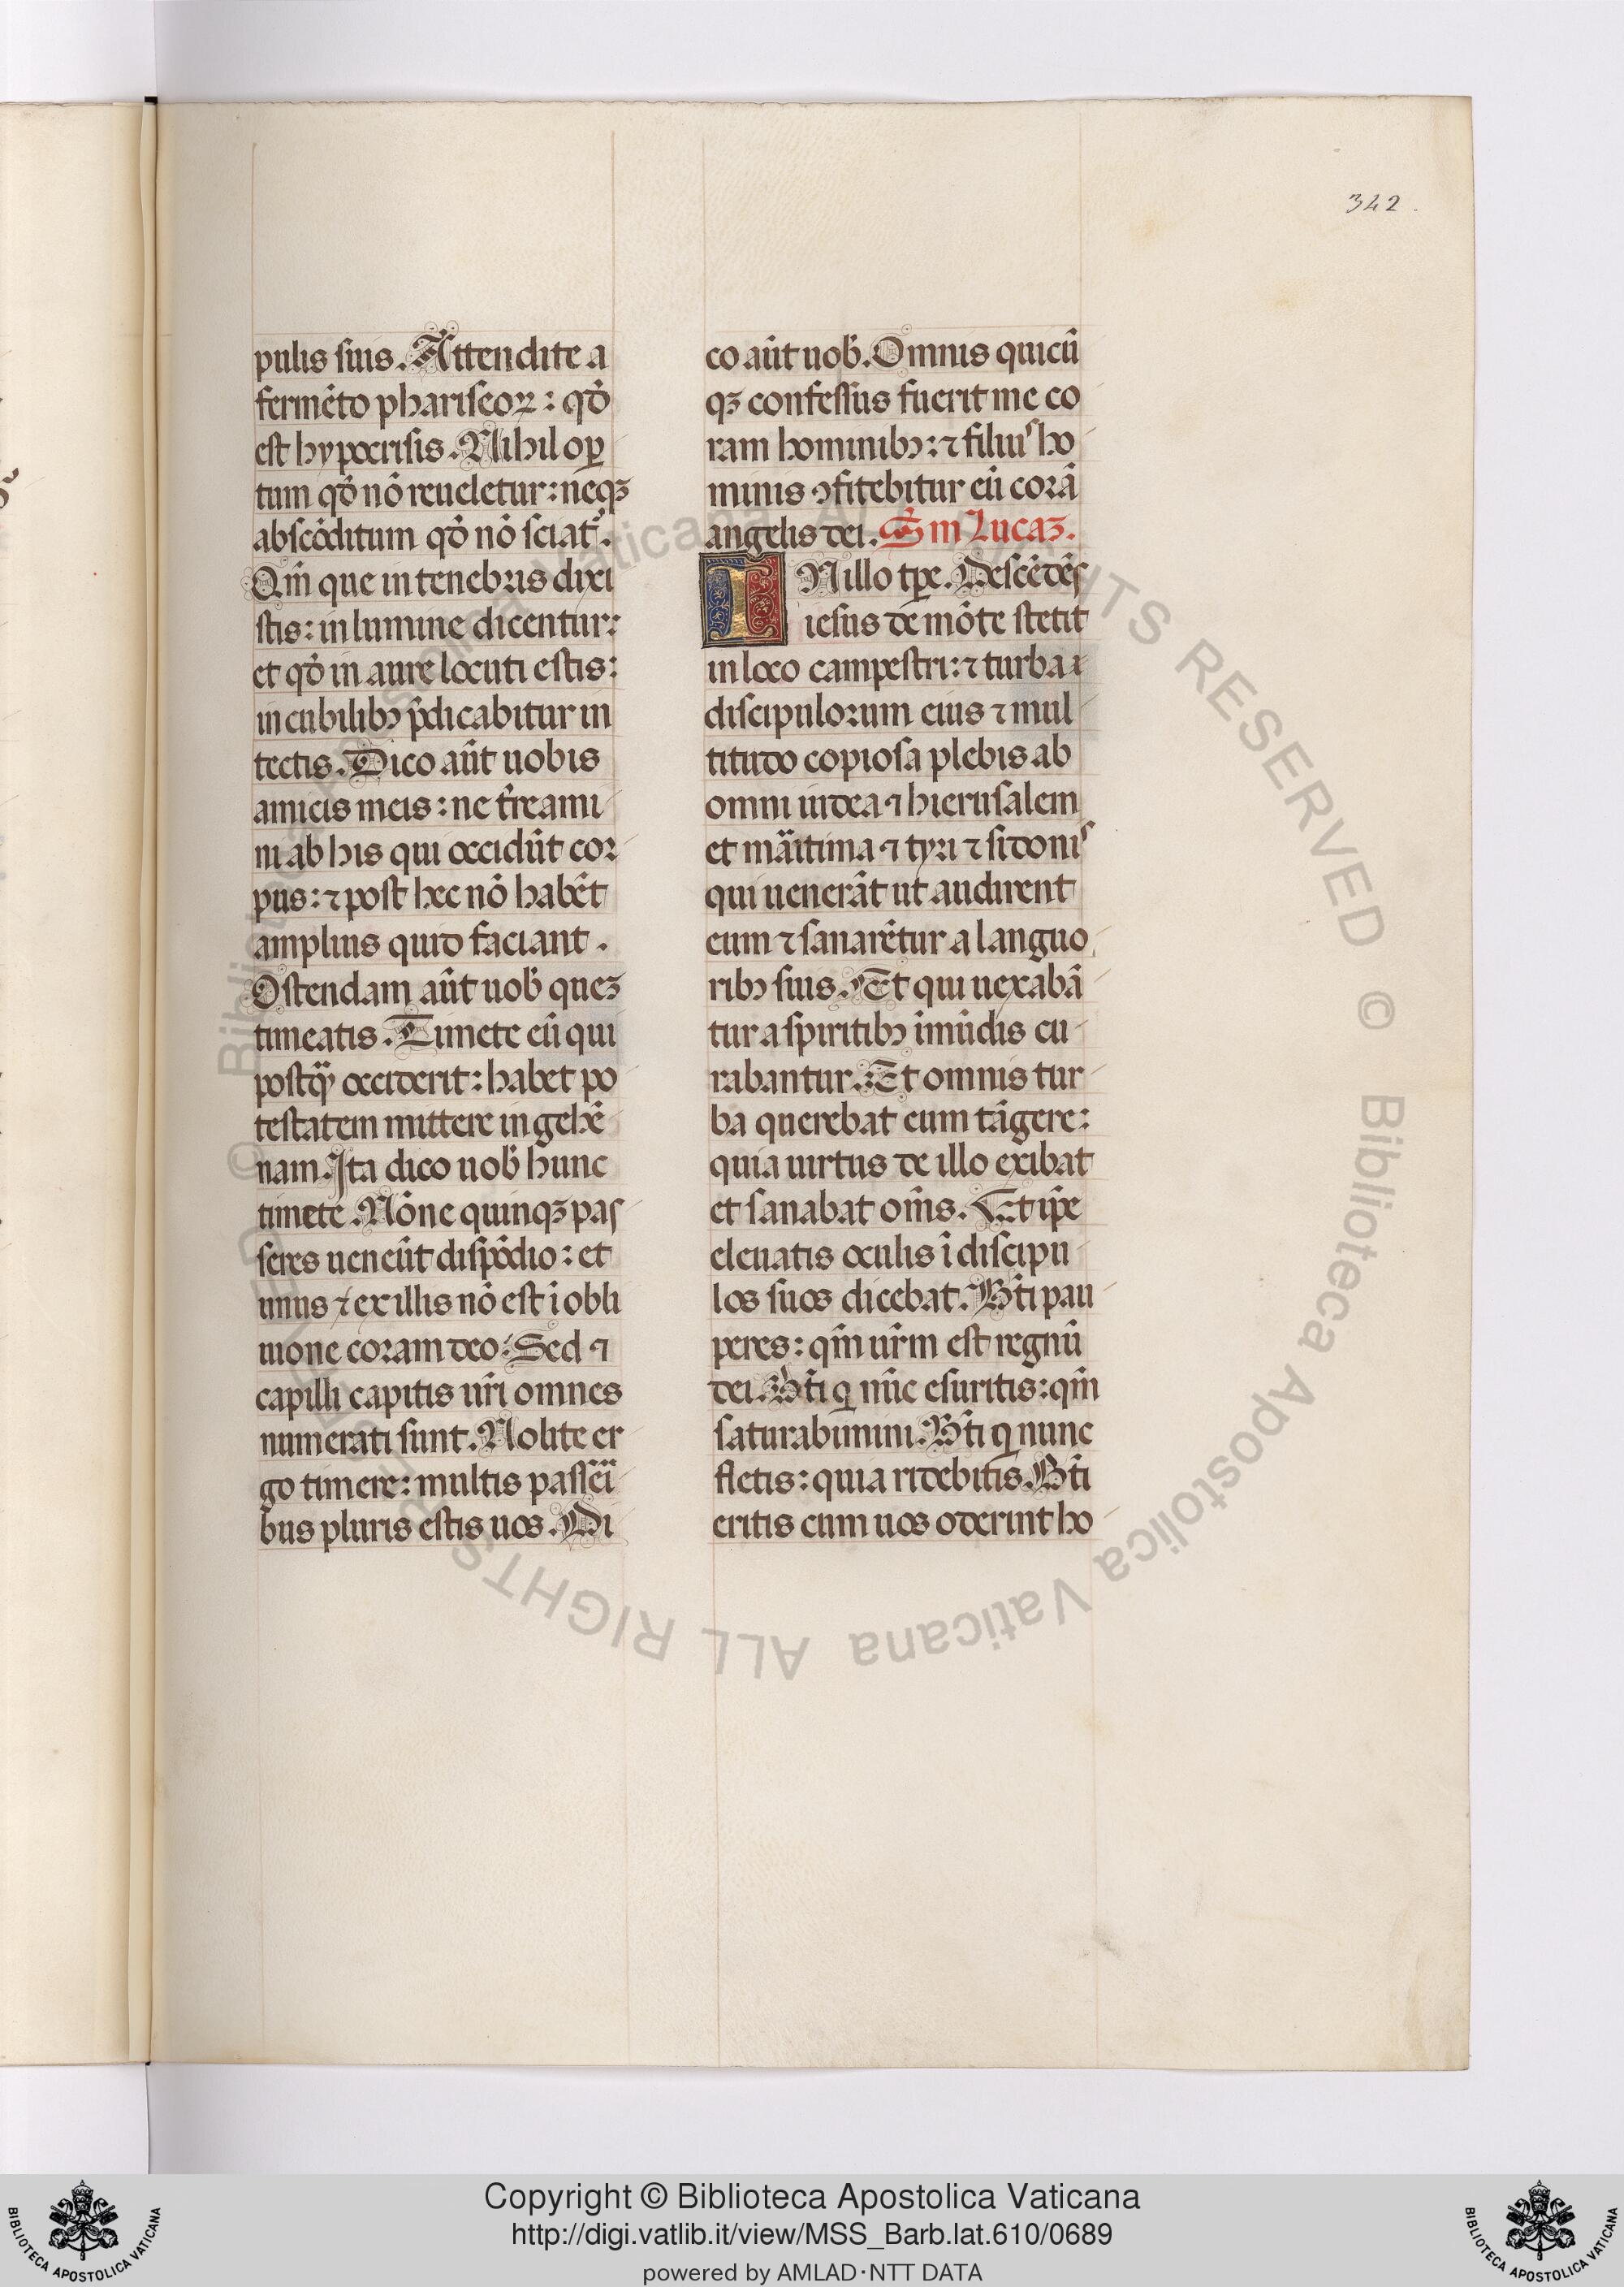 342.
pulis suis. Attendite a
fermẽto phariseoꝝ: qđ
est hypocrisis. Nihil oꝑ
tum qđ nõ reueletur: neqꝫ
abscõditum qđ nõ sciat᷑.
Qm̃ que in tenebris dixi
stis: in lumine dicentur:
et qđ in aure locuti estis:
in cubilibꝫ p̃dicabitur in
tectis. Dico aũt uobis
amicis meis: ne t̃reami
ni ab his qui occidũt cor
pus: ⁊ post hec nõ habẽt
amplius quid faciant.
Ostendam aũt uob̃ queꝫ
timeatis. Timete eũ qui
postq̃ occiderit: habet po
testatem mittere in gehẽ
nam. Ita dico uob̃ hunc
timete. Nõne quinqꝫ pas
seres ueneũt dispõdio: et
unus ⁊ ex illis nõ est ĩ obli
uione coram deo. Sed ⁊
capilli capitis ur̃i omnes
numerati sunt. Nolite er
go timere: multis passeri
bus pluris estis uos. Di
co aũt uob̃. Omnis quicũ
qꝫ confessus fuerit me co
ram hominibꝫ: ⁊ filius ho
minis ꝯfitebitur eũ corã
angelis dei. Sm̃ Lucaꝫ.
IN illo tp̃e. Descẽdẽs
iesus de mõte stetit
in loco campestri: ⁊ turba
discipulorum eius ⁊ mul
titudo copiosa plebis ab
omni iudea ⁊ hierusalem
et maritima ⁊ tyri ⁊ sidonis
qui uenerãt ut audirent
eum ⁊ sanarẽtur a languo
ribꝫ suis. Et qui uexabã
tur a spiritibꝫ ĩmũdis cu
rabantur. Et omnis tur
ba querebat eum tãgere:
quia uirtus de illo exibat
et sanabat om̃s. Et ip̃e
eleuatis oculis ĩ discipu
los suos dicebat. Bt̃i pau
peres: qm̃ ur̃m est regnũ
dei. Bt̃i q nũc esuritis: qm̃
saturabimini. Bt̃i q nunc
fletis: quia ridebitis. Bt̃i
eritis cum uos oderint ho
© Biblioteca Apostolica Vaticana ALL RIGHTS RESERVED © Biblioteca Apostolica Vaticana ALL RIGHTS RESERVED
Copyright © Biblioteca Apostolica Vaticana
http://digi.vatlib.it/view/MSS_Barb.lat.610/0689
powered by AMLAD·NTT DATA
BIBLIOTECA APOSTOLICA VATICANA
BIBLIOTECA APOSTOLICA VATICANA